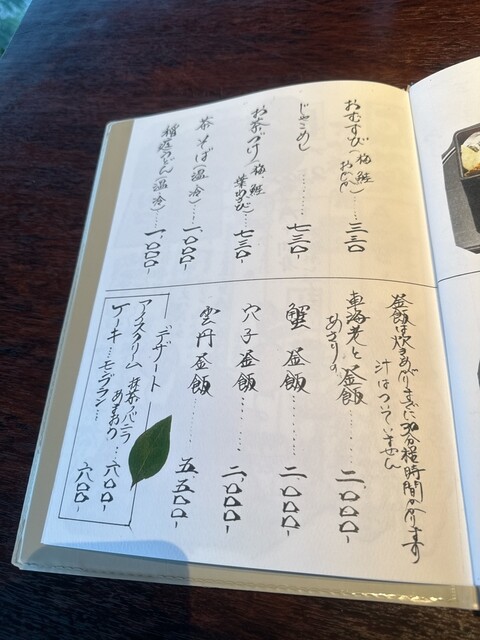 おむすび(梅 鮭 おかか)……三三〇
じゃこめし……七三〇
お茶づけ(梅 鮭 葉わさび)…七三〇
茶そば(温 冷)……一、〇〇〇-
稲庭うどん(温 冷)……一、〇〇〇-
釜飯は炊きあがりまでに30分程時間かかります
汁はついていません
車海老とあさりの釜飯……二、〇〇〇-
蟹釜飯……二、〇〇〇-
穴子釜飯……二、〇〇〇-
雲丹釜飯……五、五〇〇-
デザート
アイスクリーム 抹茶 バニラ あまおう…六〇〇-
ケーキ…モンブラン…六〇〇-